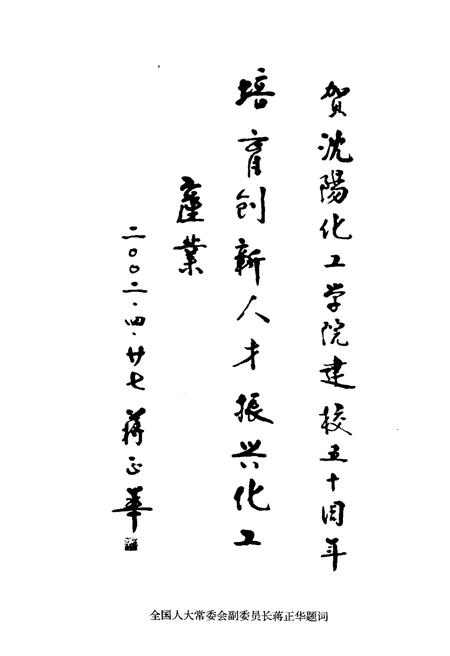 贺沈陽化工学院建校五十周年
培育创新人才振兴化工
產業
二〇〇二.四.廿七 蒋正華
全国人大常委会副委员长蒋正华题词